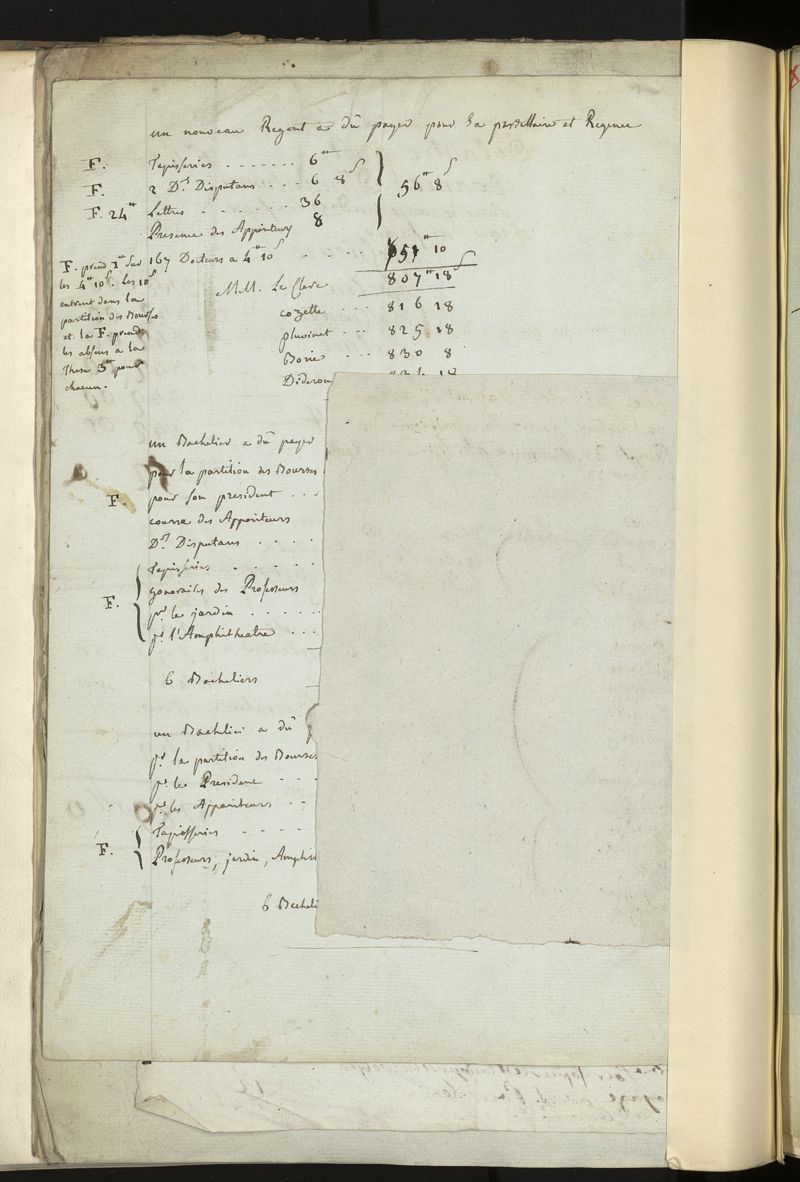 un nouveau Regent a dû payer pour la pastillaire et Regence
F. Tapisseries . . . . . . . 6ᵗᵗ
F. 2 Dʳˢ Disputans . . . 6 8ˢ
56ᵗᵗ 8ˢ
F. 24ᵗᵗ Lettres . . . . . . . 36
Presence des Appariteurs 8
167 Docteurs a 4ᵗᵗ 10ˢ . . . . . 751ᵗᵗ 10
F. prend 1ᵗᵗ sur
les 4ᵗᵗ 10ˢ. les 10ˢ
entrent dans la
partition des Bourses
et la F. prend
les absens a la
These 3ᵗᵗ pour
chacun.
807ᵗᵗ 18ˢ
M.M. Le Clerc
cozette . . . 816 18
pluvinet . . . 825 18
Borie . . . 830 8
Dideron
un Bachelier a dû payer
pour la partition des Bourses
F. pour son president . . .
course des Appariteurs
Dʳˢ Disputans . . . .
Tapisseries . . . . . .
F. honoraires des Professeurs
pʳ le jardin . . . . . .
pʳ l'Amphitheatre . . .
6 Bacheliers
un Bachelier a dû
pʳ la partition des Bourses
pʳ le President - - -
pʳ les Appariteurs - -
Tapisseries - - - - -
F. Professeurs, jardin, Amphit
6 Bacheli